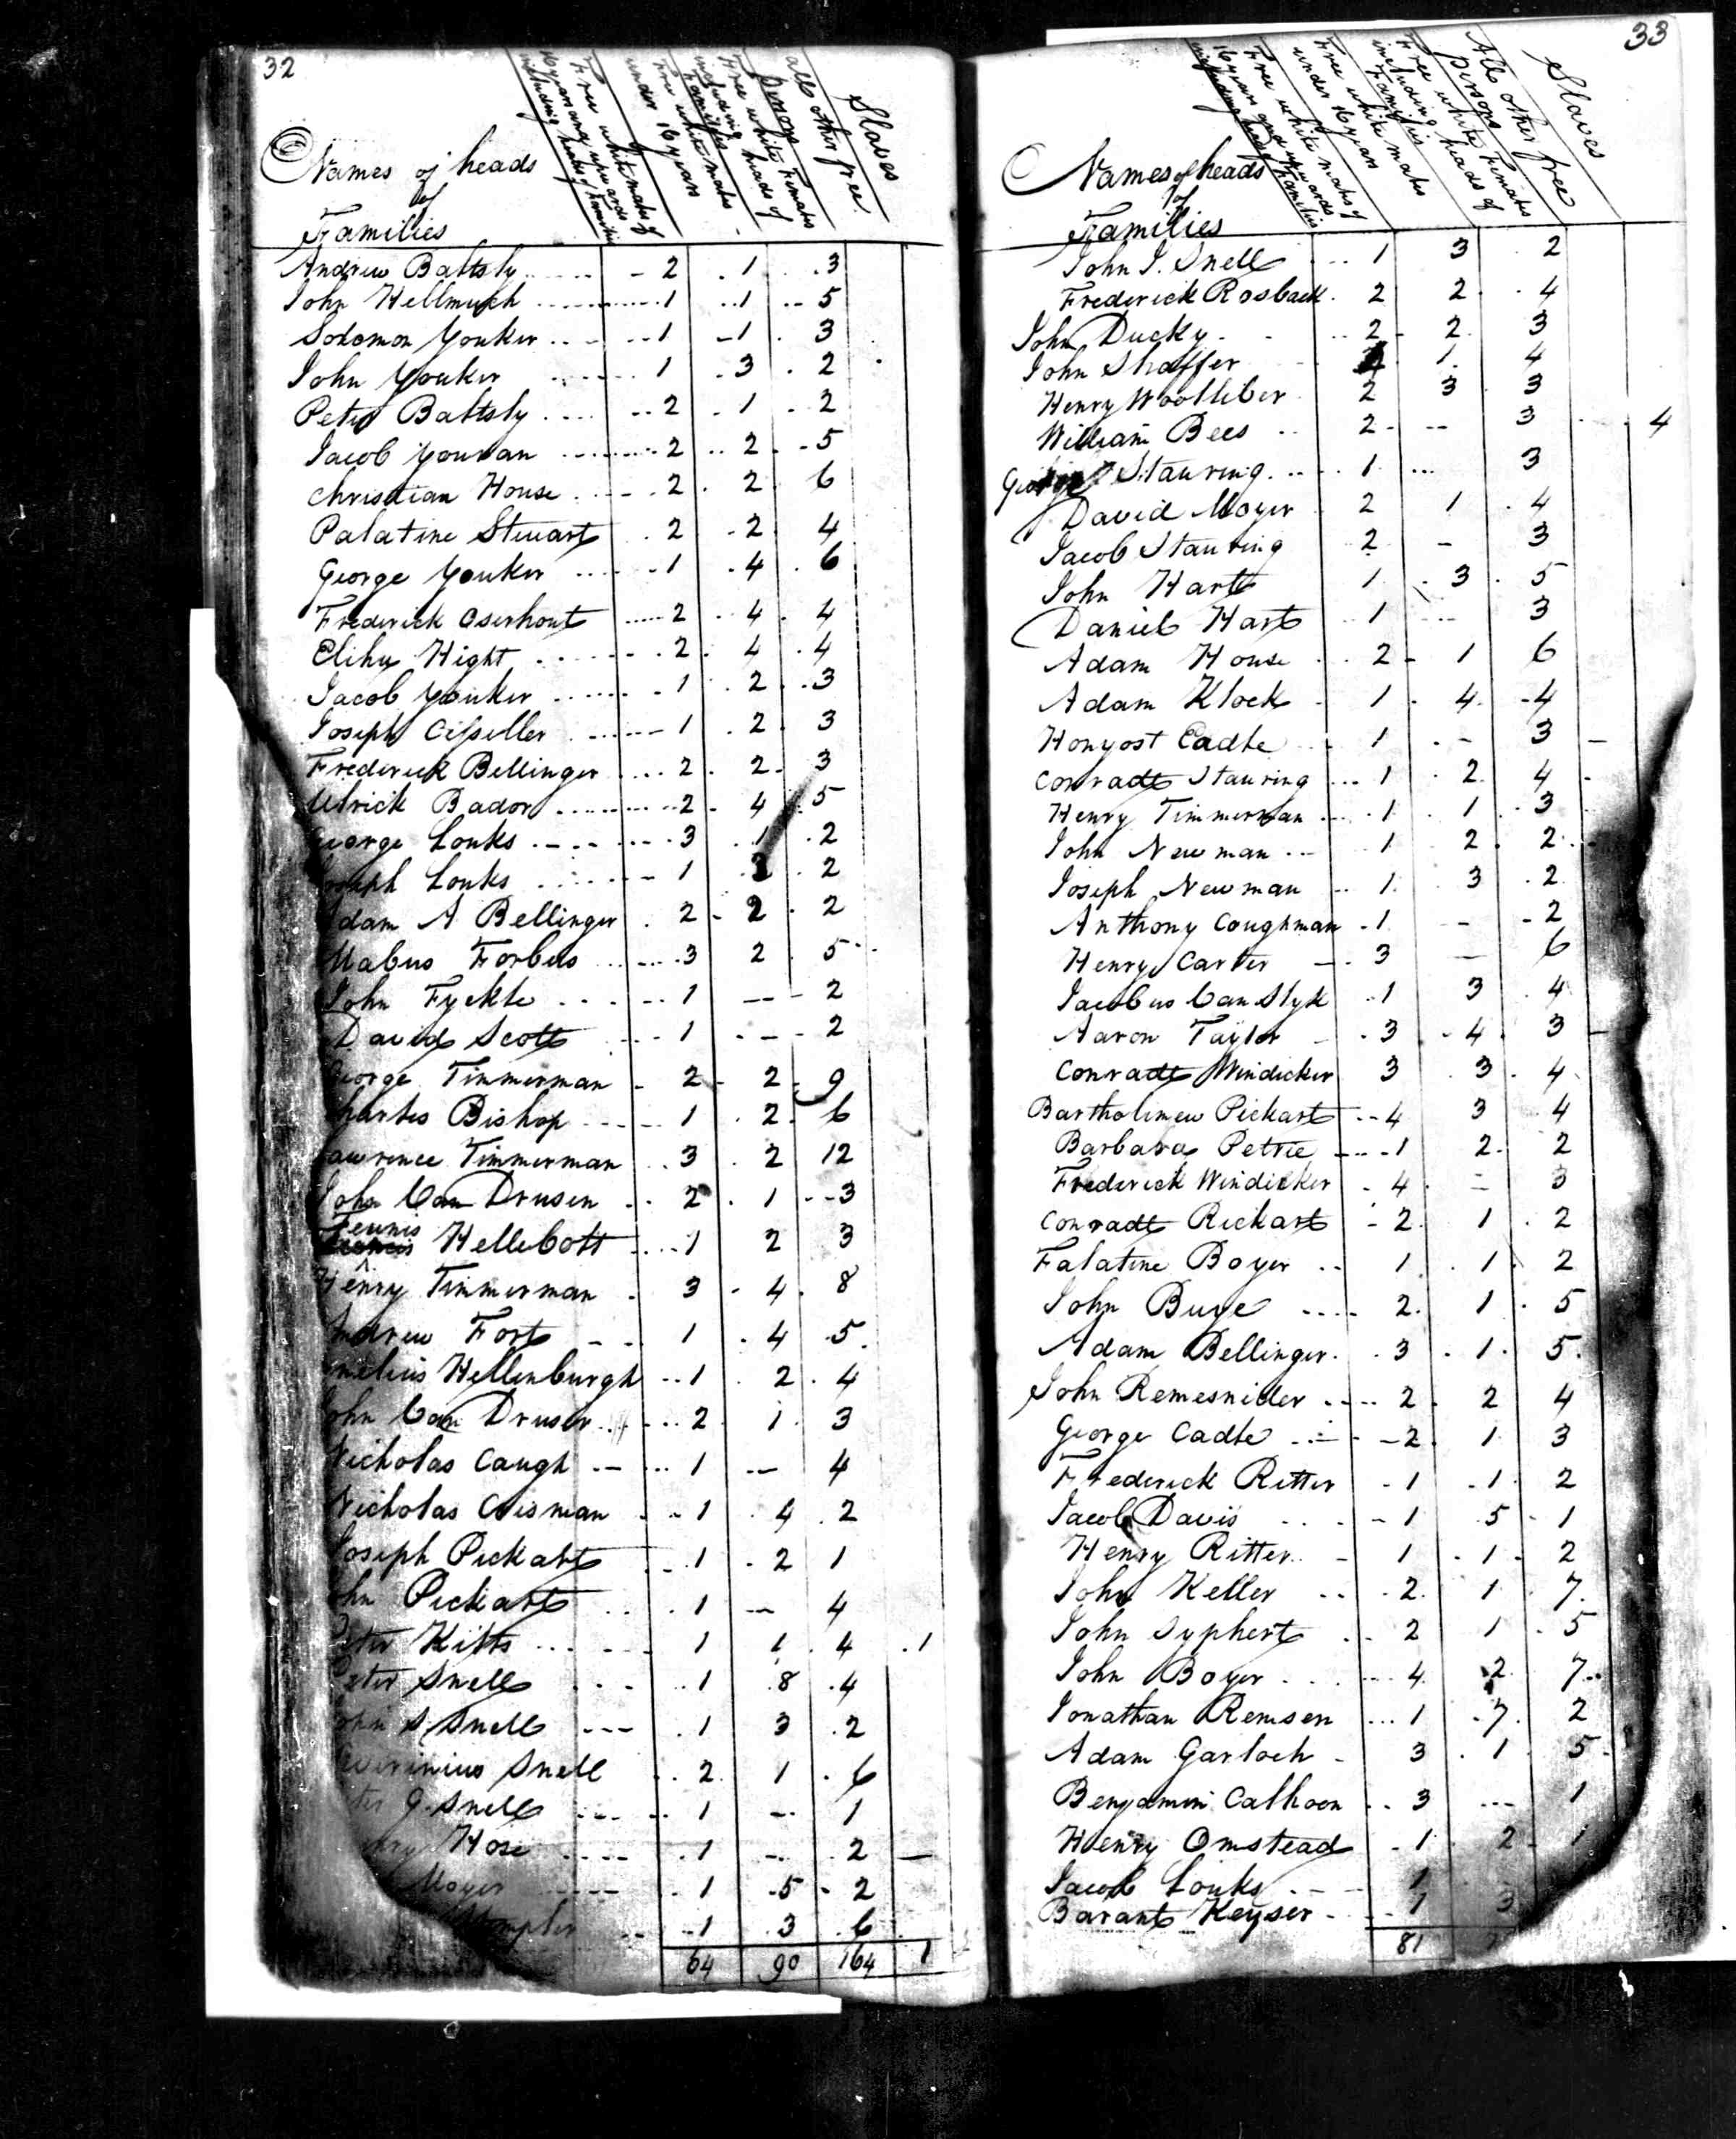 32
Names of heads
of
Families
Free white males of
16 years and upwards
including heads of families
Free white males
under 16 years
Free white Females
including heads of
Families
all other free
Persons
Slaves
Andrew Battsly 2 1 3
John Hellmuch 1 1 5
Solomon Youker 1 1 3
John Youker 1 3 2
Peter Battsly 2 1 2
Jacob Youran 2 2 5
Christian House 2 2 6
Palatine Steuart 2 2 4
George Youker 1 4 6
Frederick Oserhout 2 4 4
Elihu Hight 2 4 4
Jacob Youker 1 2 3
Joseph 1 2 3
Frederick Bellinger 2 2 3
Ulrick Bador 2 4 5
George Louks 3 1 2
Joseph Louks 1 2
Adam A Bellinger 2 2 2
Mabus Forbus 3 2 5
John Fyckle 1 -- 2
David Scott 1 -- 2
George Timmerman 2 2 9
Charles Bishop 1 2 6
Lawrence Timmerman 3 2 12
John Van Drusen 2 1 3
Teunis
Hellebott 1 2 3
Henry Timmerman 3 4 8
Andrew Fort 1 4 5
Hellenburgh 1 2 4
John Van Druser 2 1 3
Nicholas Caugh 1 -- 4
Nicholas Crisman 1 4 2
Joseph Pickart 1 2 1
John Pickart 1 -- 4
Peter Kitts 1 1 4 1
Peter Snell 1 8 4
John S. Snell 1 3 2
Severinius Snell 2 1 6
G. Snell 1 - 1
Hose 1 - 2
Moyer 1 5 2
1 3 6
64 90 164 1
33
Names of heads
of
Families
Free white males of
16 years and upwards
including heads of Families
Free white males
under 16 years
Free white Females
including heads of
Families
All other free
Persons
Slaves
John J. Snell 1 3 2
Frederick Rosback 2 2 4
John Ducky 2 2 3
John Shaffer 1 4
Henry Woolleber 2 3 3
William Bees 2 -- 3 4
George Stauring 1 -- 3
David Moyer 2 1 4
Jacob Stauring 2 - 3
John Hart 1 3 5
Daniel Hart 1 -- 3
Adam House 2 1 6
Adam Klock 1 4 4
Honyost Eadle 1 - 3
Conradt Stauring 1 2 4
Henry Timmerman 1 1 3
John Newman 1 2 2
Joseph Newman 1 3 2
Anthony Coughman 1 - 2
Henry Carter 3 - 6
Jacobus Van Slyk 1 3 4
Aaron Taylor 3 4 3
Conradt Windicker 3 3 4
Bartholimew Pickart 4 3 4
Barbara Petrie 1 2 2
Frederick Windicker 4 - 3
Conradt Rickart 2 1 2
Falatine Boyer 1 1 2
John Buye 2 1 5
Adam Bellinger 3 1 5
John Remesnider 2 2 4
George Cadle 2 1 3
Frederick Ritter 1 1 2
Jacob Davis 1 5 1
Henry Ritter 1 1 2
John Keller 2 1 7
John Syphert 2 1 5
John Boyer 4 2 7
Jonathan Remsen 1 7 2
Adam Garloch 3 1 5
Benjamin Calhoon 3 -- 1
Henry Omstead 1 2 1
Jacob Louks 1
Barant Keyser 1 3
81